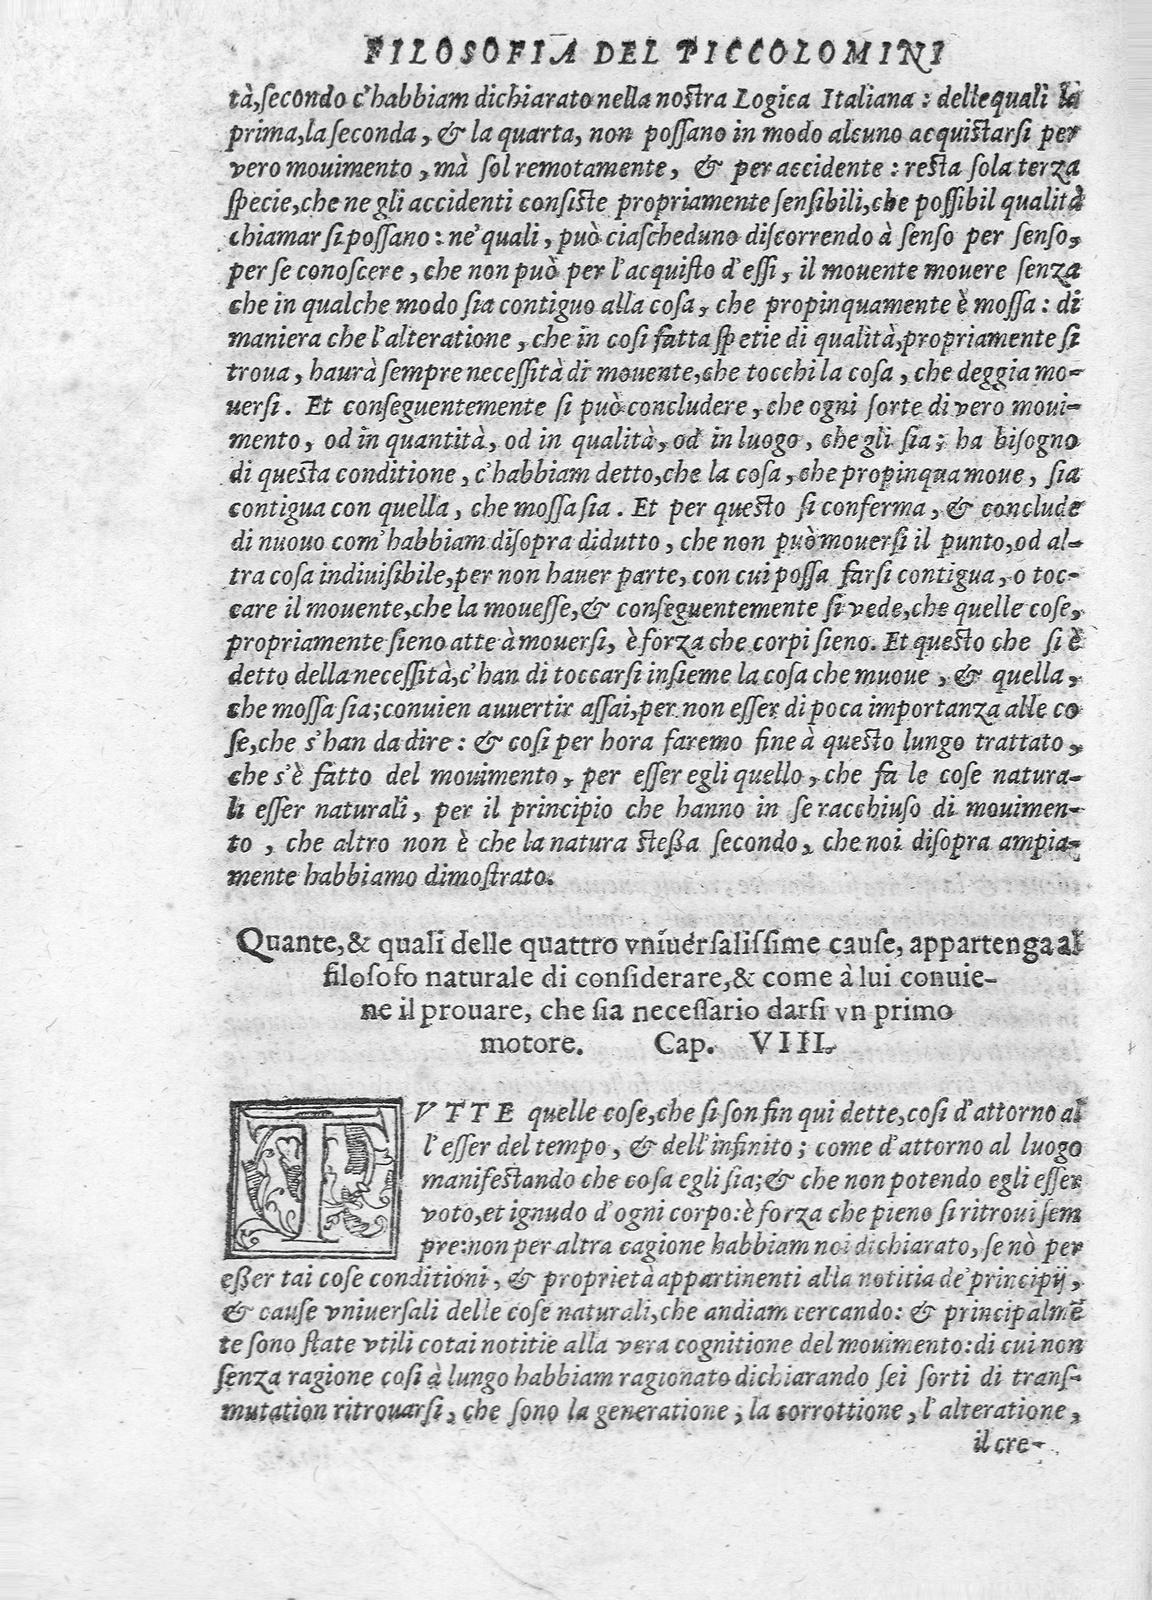 FILOSOFIA DEL PICCOLOMINI
tà, secondo c'habbiam dichiarato nella nostra Logica Italiana: delle quali la
prima, la seconda, & la quarta, non possano in modo alcuno acquistarsi per
vero mouimento, mà sol remotamente, & per accidente: resta sola terza
specie, che ne gli accidenti consiste propriamente sensibili, che possibil qualità
chiamar si possano: ne' quali, può ciascheduno discorrendo à senso per senso,
per se conoscere, che non può per l'acquisto d'essi, il mouente mouere senza
che in qualche modo sia contiguo alla cosa, che propinquamente è mossa: di
maniera che l'alteratione, che in cosi fatta spetie di qualità, propriamente si
troua, haurà sempre necessità di mouente, che tocchi la cosa, che deggia mo-
uersi. Et conseguentemente si può concludere, che ogni sorte di vero moui-
mento, od in quantità, od in qualità, od in luogo, che gli sia; ha bisogno
di questa conditione, c'habbiam detto, che la cosa, che propinqua moue, sia
contigua con quella, che mossa sia. Et per questo si conferma, & conclude
di nuouo com'habbiam disopra didutto, che non può mouersi il punto, od al-
tra cosa indiuisibile, per non hauer parte, con cui possa farsi contigua, o toc-
care il mouente, che la mouesse, & conseguentemente si vede, che quelle cose,
propriamente sieno atte à mouersi, è forza che corpi sieno. Et questo che si è
detto della necessità, c'han di toccarsi insieme la cosa che muoue, & quella,
che mossa sia; conuien auuertir assai, per non esser di poca importanza alle co
se, che s'han da dire: & cosi per hora faremo fine à questo lungo trattato,
che s'è fatto del mouimento, per esser egli quello, che fa le cose natura-
li esser naturali, per il principio che hanno in se racchiuso di mouimen-
to, che altro non è che la natura steßa secondo, che noi disopra ampia-
mente habbiamo dimostrato.
Quante, & quali delle quattro vniuersalissime cause, appartenga al
filosofo naturale di considerare, & come à lui conuie-
ne il prouare, che sia necessario darsi vn primo
motore. Cap. VIII.
TVTTE quelle cose, che si son fin qui dette, cosi d'attorno al
l'esser del tempo, & dell'infinito; come d'attorno al luogo
manifestando che cosa egli sia; & che non potendo egli esser
voto, et ignudo d'ogni corpo: è forza che pieno si ritroui sem
pre: non per altra cagione habbiam noi dichiarato, se nò per
eßer tai cose conditioni, & proprietà appartinenti alla notitia de' principij,
& cause vniuersali delle cose naturali, che andiam cercando: & principalmē
te sono state vtili cotai notitie alla vera cognitione del mouimento: di cui non
senza ragione cosi à lungo habbiam ragionato dichiarando sei sorti di trans-
mutation ritrouarsi, che sono la generatione, la corrottione, l'alteratione,
il cre-